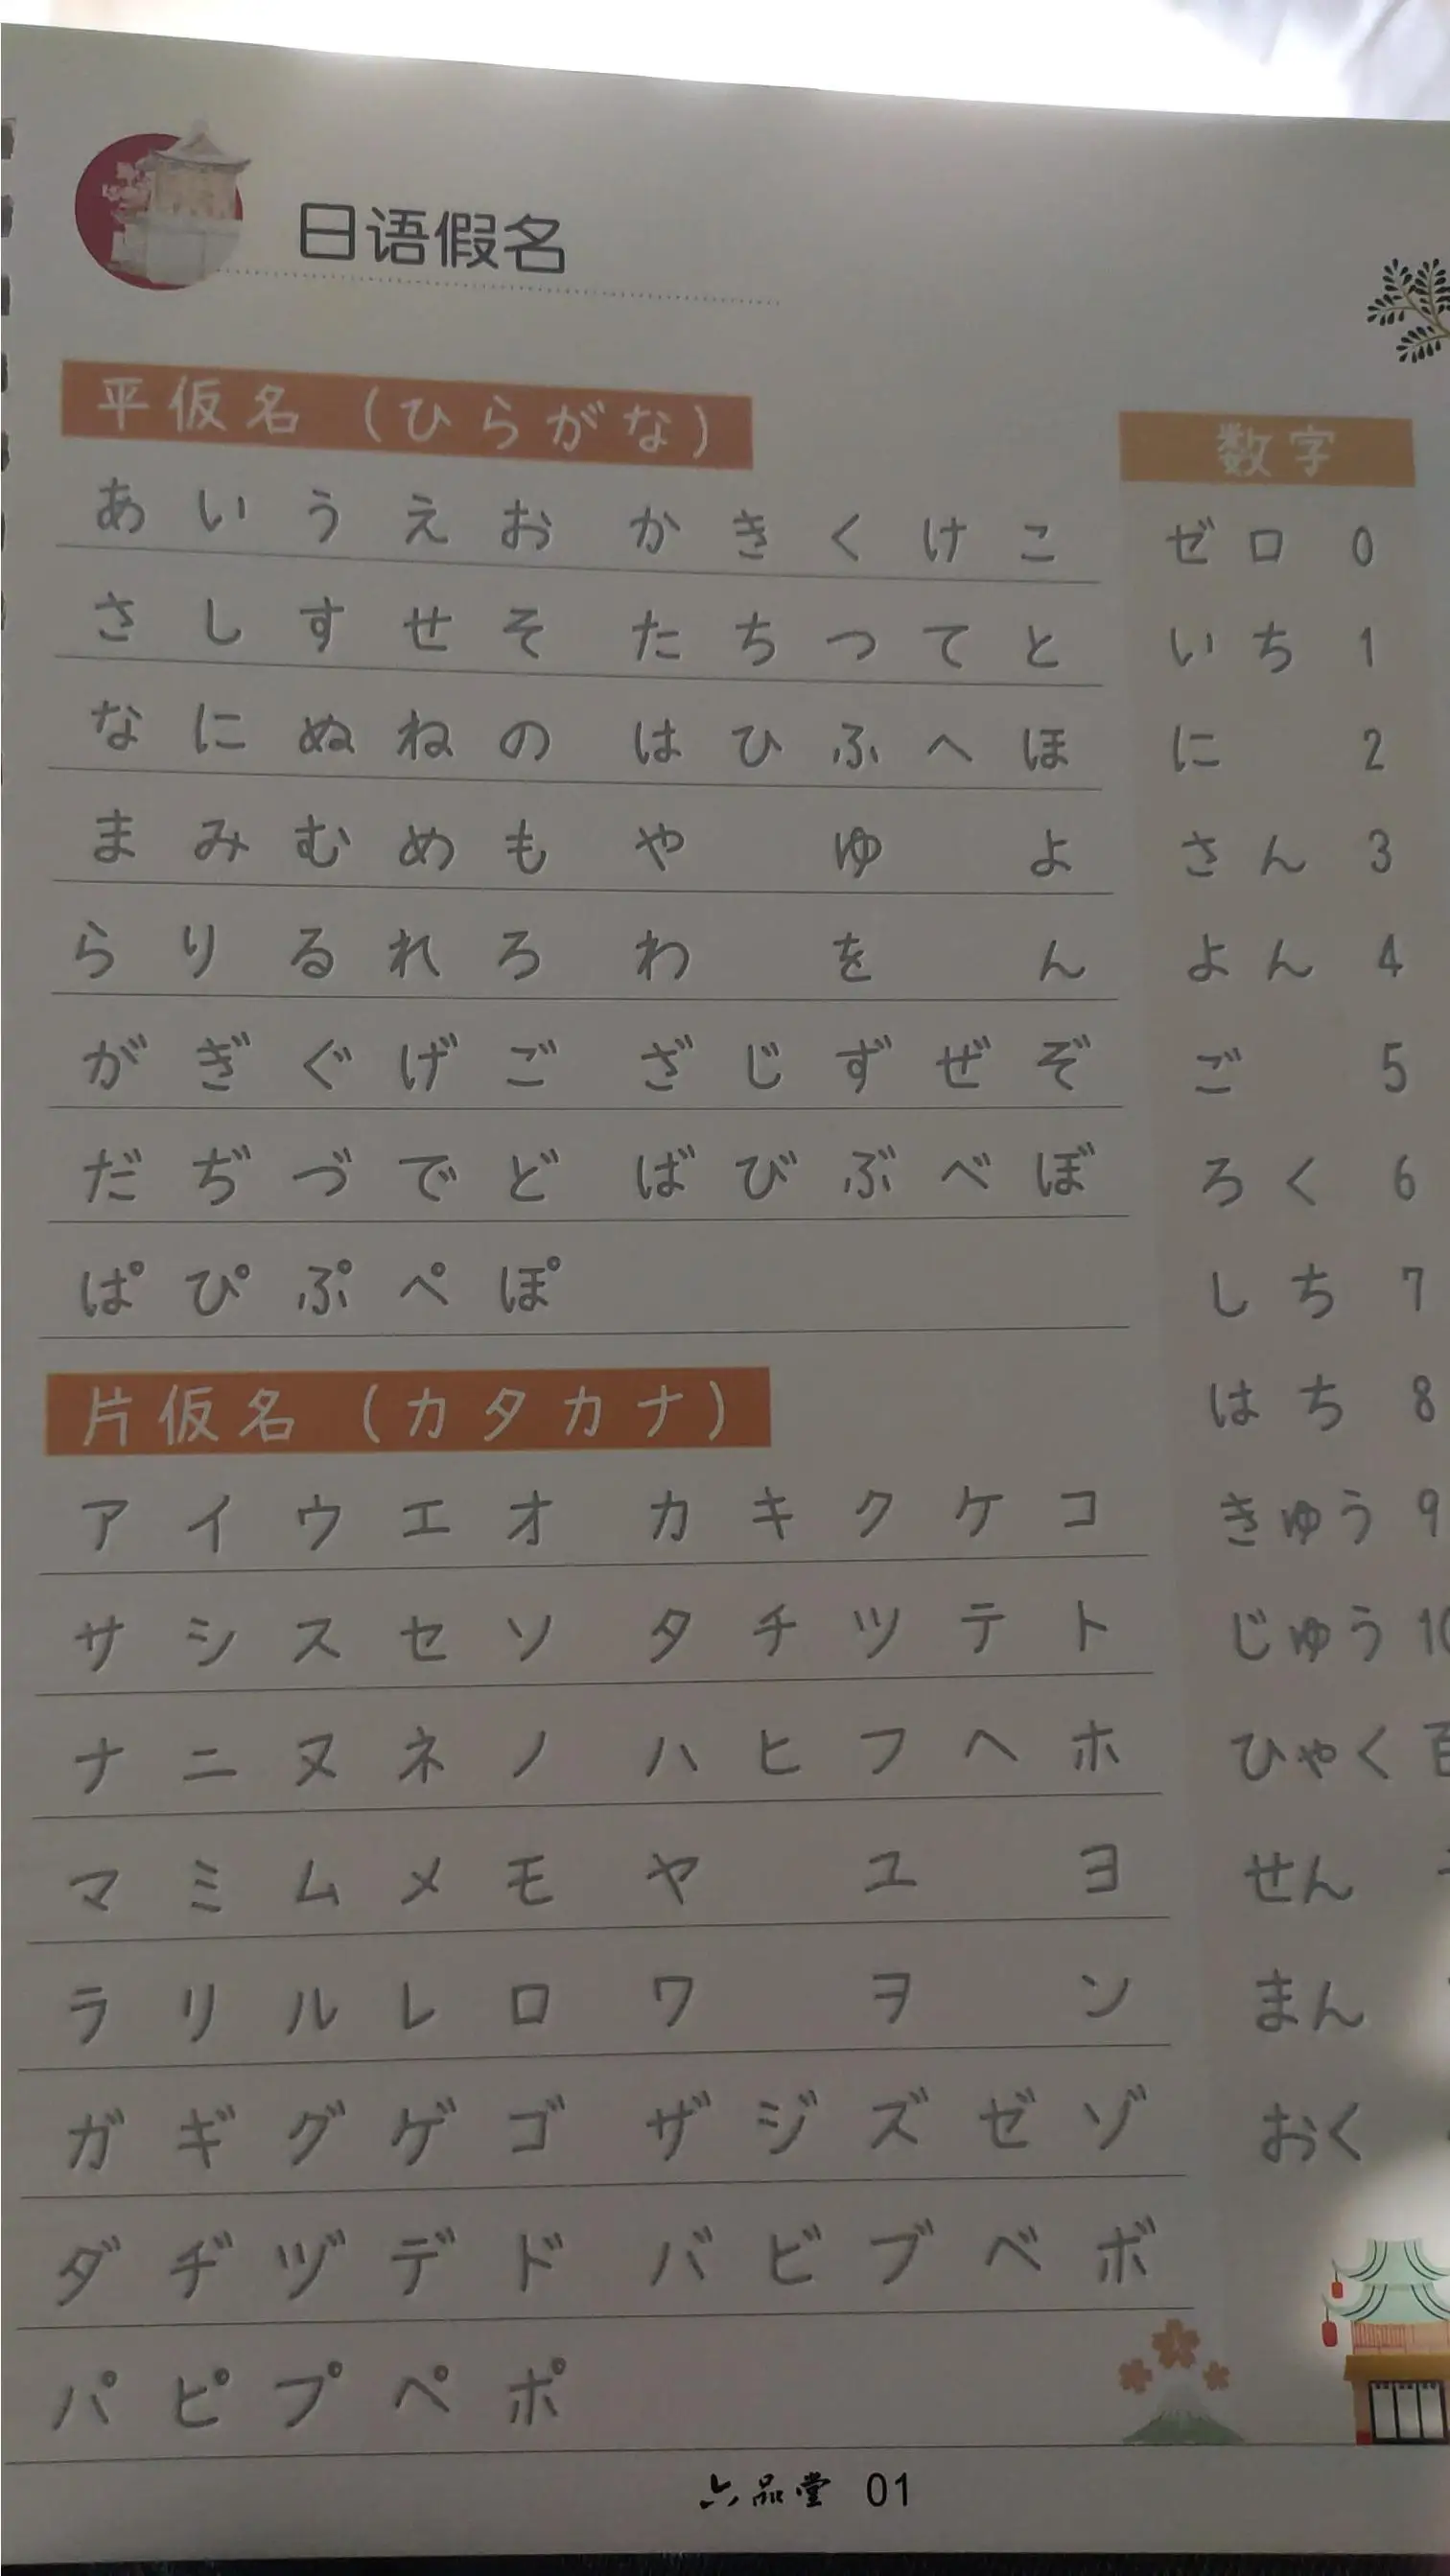 日语假名
平仮名（ひらがな）
あ い う え お か き く け こ
さ し す せ そ た ち つ て と
な に ぬ ね の は ひ ふ へ ほ
ま み む め も や ゆ よ
ら り る れ ろ わ を ん
が ぎ ぐ げ ご ざ じ ず ぜ ぞ
だ ぢ づ で ど ば び ぶ べ ぼ
ぱ ぴ ぷ ぺ ぽ
片仮名（カタカナ）
ア イ ウ エ オ カ キ ク ケ コ
サ シ ス セ ソ タ チ ツ テ ト
ナ ニ ヌ ネ ノ ハ ヒ フ ヘ ホ
マ ミ ム メ モ ヤ ユ ヨ
ラ リ ル レ ロ ワ ヲ ン
ガ ギ グ ゲ ゴ ザ ジ ズ ゼ ゾ
ダ ヂ ヅ デ ド バ ビ ブ ベ ボ
パ ピ プ ペ ポ
数字
ゼロ 0
いち 1
に 2
さん 3
よん 4
ご 5
ろく 6
しち 7
はち 8
きゅう 9
じゅう 10
ひゃく
せん
まん
おく
六品堂 01